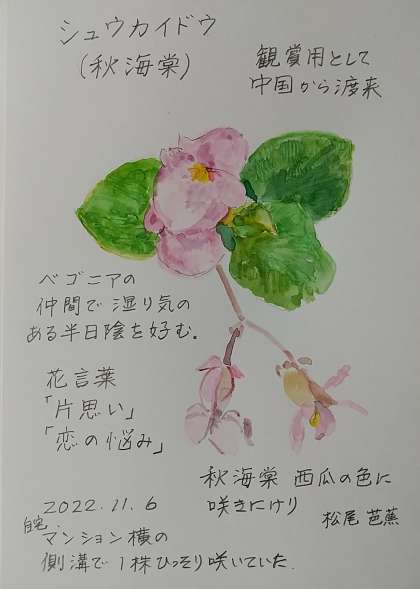 シュウカイドウ
(秋海棠)
観賞用として
中国から渡来
ベゴニアの
仲間で湿り気の
ある半日陰を好む。
花言葉
「片思い」
「恋の悩み」
秋海棠 西瓜の色に
咲きにけり
松尾 芭蕉
2022.11.6
自宅.
マンション横の
側溝で1株ひっそり咲いていた.